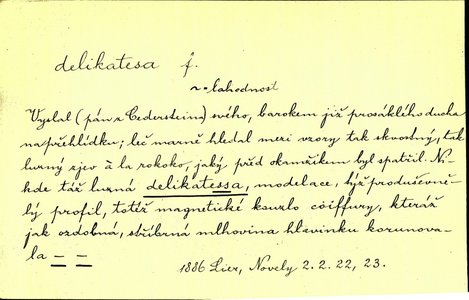 delikatesa f.
~ lahodnost
Vyslal (pán z Cederstein) svého, barokem již prosáklého ducha
na přehlídku; leč marně hledal mezi vzory tak skvostný, tak
luzný zjev à la rokoko, jaký před okamžikem byl spatřil. Ni-
kde táž luzná delikátessa, modelace, týž produševně-
lý profil, totéž magnetické kouzlo coiffury, kteráž
jak ozdobná, stříbrná mlhovina hlavinku korunova-
la _ _
1886 Lier, Novely 2. 2. 22, 23.